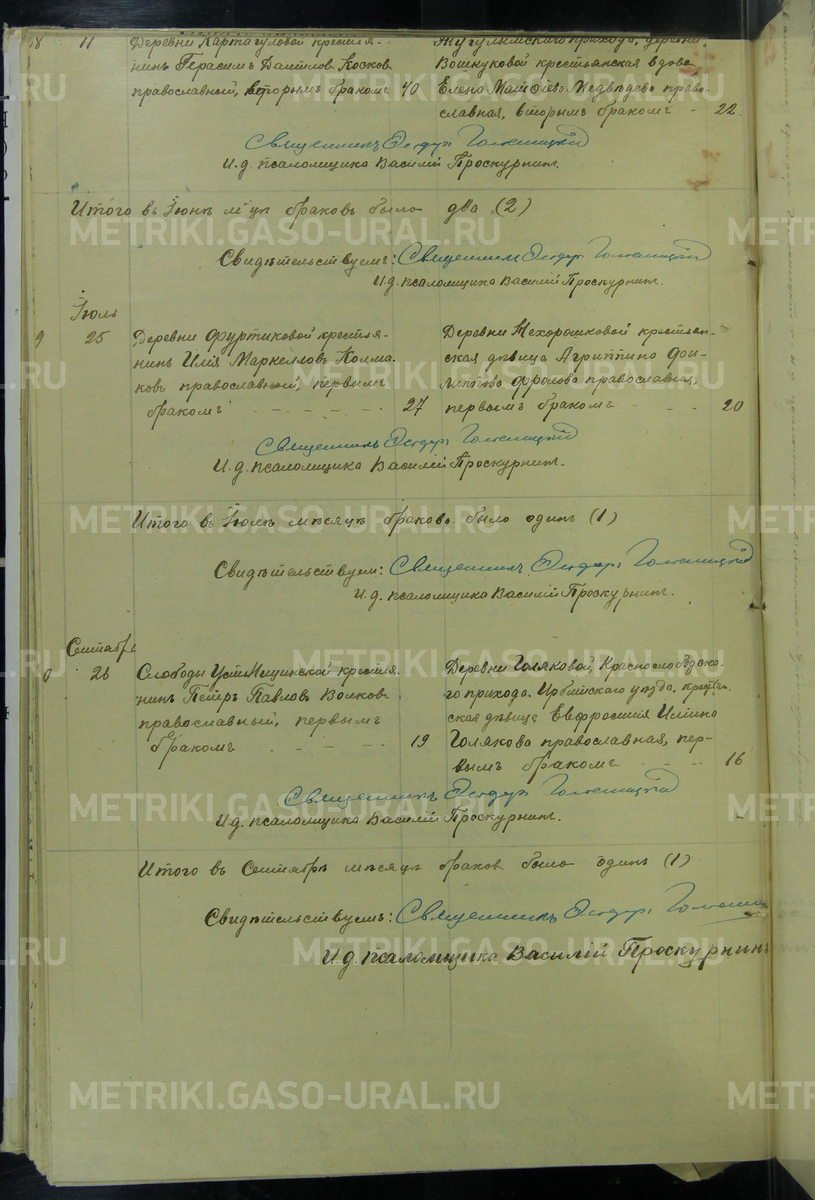 8 11 Деревни Картагуловой крестья-
нинъ Герасимъ Даниловъ Косковъ
православный, вторымъ бракомъ 40
Тугулымскаго прихода, деревни
крестьянская вдова
Елена Медведева право-
славная, вторымъ бракомъ - 22.
Священникъ
И.д. псаломщика Василій Проскурнин.
Итого въ Іюнѣ м-цѣ браковъ было два (2)
Свидѣтельствуемъ: Священникъ
И.д. псаломщика Василій Проскурнин.
Іюль
9 25 Деревни Фуртиковой крестья-
нинъ Илія Маркелловъ Колма-
ковъ православный, первымъ
бракомъ - - - - - 27
Деревни крестьян-
ская дѣвица Агриппина
Фролова православная,
первымъ бракомъ - - 20
Священникъ
И.д. псаломщика Василій Проскурнин.
Итого въ Іюлѣ мѣсяцѣ браковъ было одинъ (1)
Свидѣтельствуем: Священникъ
И.д. псаломщика Василій Проскурнин.
Сентябрь
0 26 Слободы Усть Ницинской крестья-
нинъ Петръ Павловъ Волковъ
православный, первымъ
бракомъ - - - - - 19
Деревни Голяковой, Краснослободска-
го прихода, Ирбитскаго уѣзда, крестьян-
ская дѣвица Евфросинія Иліина
Голякова православная, пер-
вымъ бракомъ - - - 16
Священникъ
И.д. псаломщика Василій Проскурнин.
Итого въ Сентябрѣ мѣсяцѣ браков было одинъ (1)
Свидѣтельствуемъ: Священникъ
И.д. псаломщика Василій Проскурнинъ
METRIKI.GASO-URAL.RU